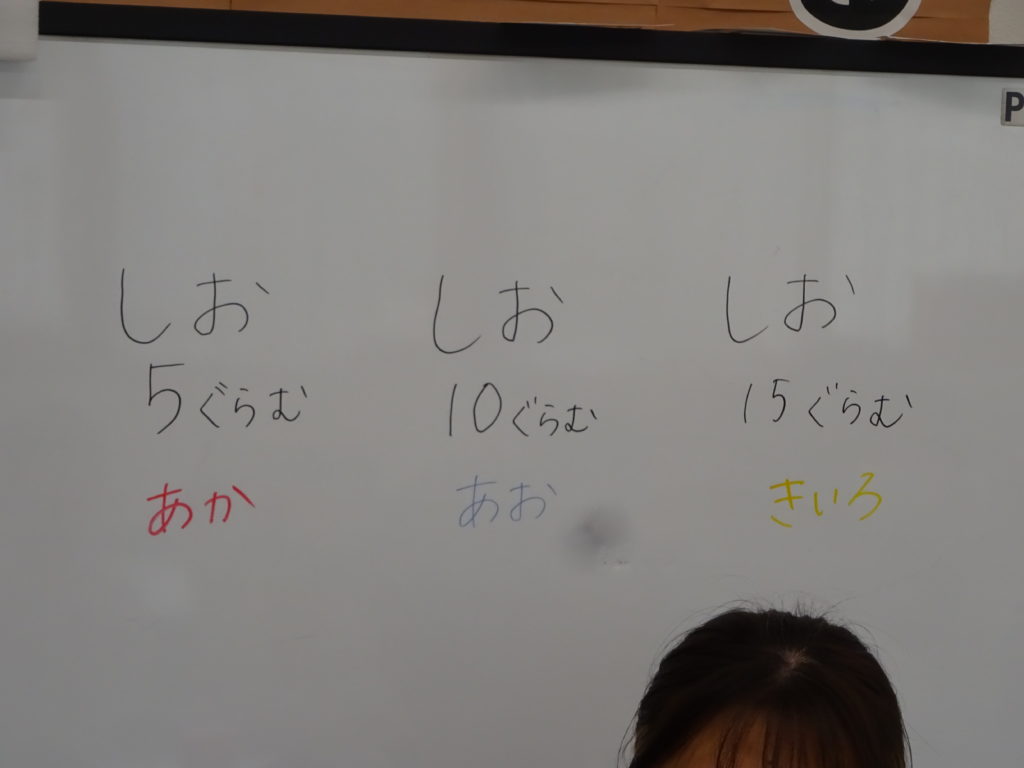 P
しお しお しお
5ぐらむ 10ぐらむ 15ぐらむ
あか あお きいろ